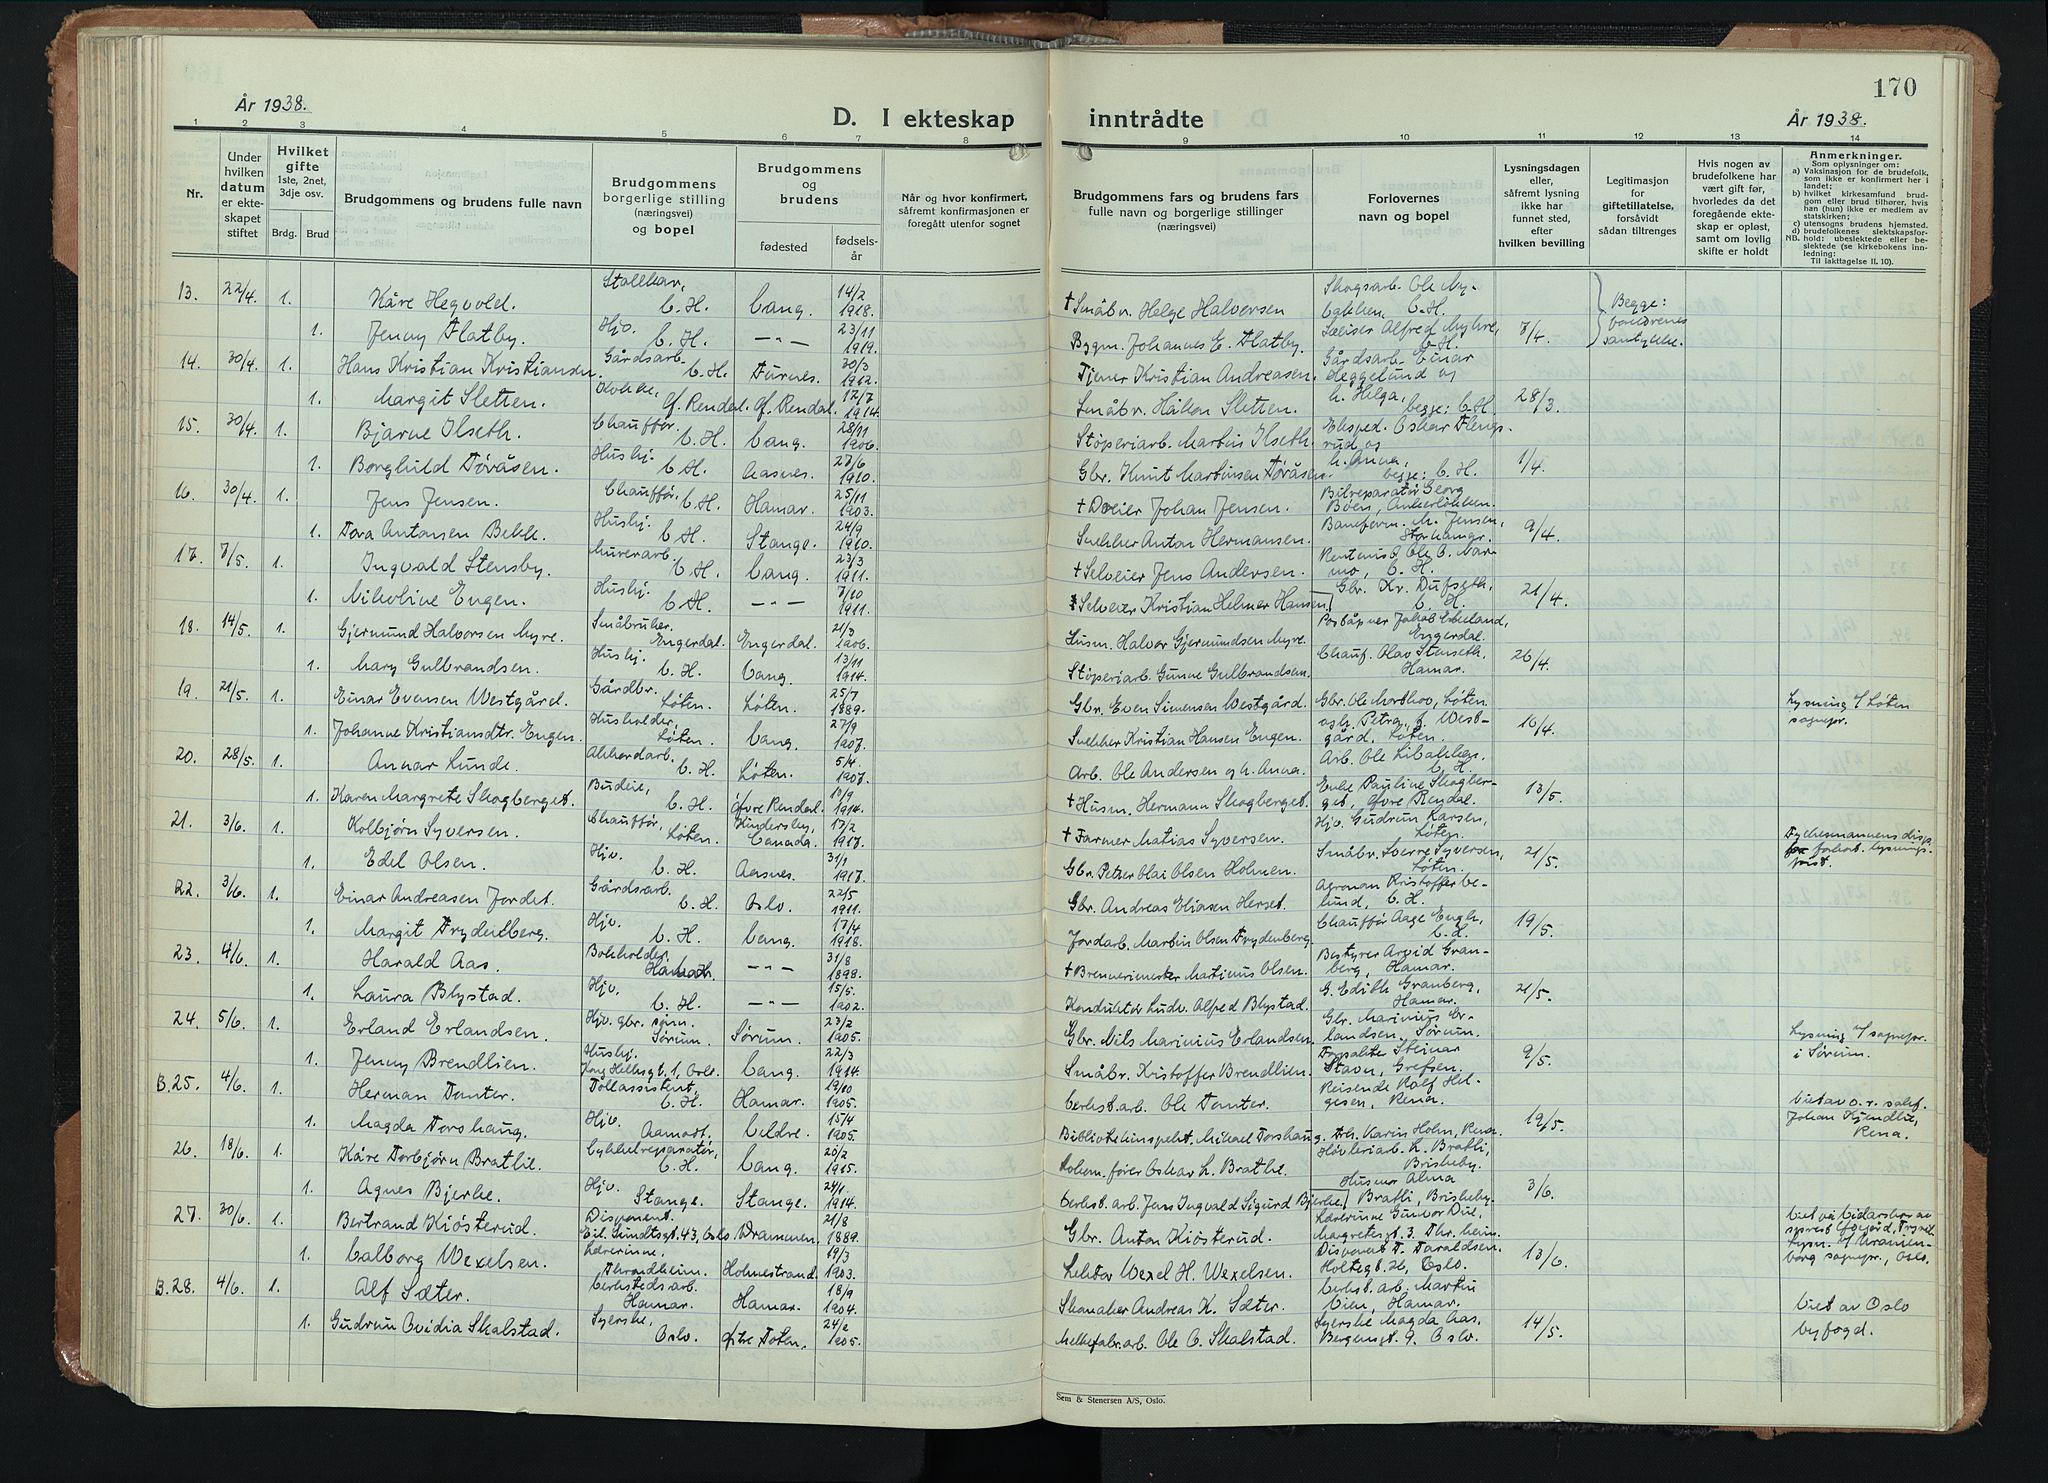 170
År 1938.
D. I ekteskap inntrådte
År 1938.
1 2 3 4 5 6 7 8 9 10 11 12 13 14
Nr.
Under hvilken datum er ekteskapet stiftet
Hvilket gifte 1ste, 2net, 3dje osv.
Brdg. Brud
Brudgommens og brudens fulle navn
Brudgommens borgerlige stilling (næringsvei) og bopel
Brudgommens og brudens
fødested
fødselsår
Når og hvor konfirmert, såfremt konfirmasjonen er foregått utenfor sognet
Brudgommens fars og brudens fars fulle navn og borgerlige stillinger (næringsvei)
Forlovernes navn og bopel
Lysningsdagen eller, såfremt lysning ikke har funnet sted, efter hvilken bevilling
Legitimasjon for giftetillatelse, forsåvidt sådan tiltrenges
Hvis nogen av brudefolkene har vært gift før, hvorledes da det foregående ekteskap er opløst, samt om lovlig skifte er holdt
Anmerkninger.
Som oplysninger om:
a) Vaksinasjon for de brudefolk, som ikke er konfirmert her i landet;
b) hvilket kirkesamfund brudgom eller brud tilhører, hvis han (hun) ikke er medlem av statskirken;
c) utensogns brudens hjemsted.
d) brudefolkenes slektskapsforhold: ubeslektede eller beslektede (se kirkebokens innledning:
NB.
Til iakttagelse II. 10).
13. 22/4. 1. Kåre Hegvold. V. H. Vang. 14/2 1918. † Småbr. Helge Halvorsen Skogsarb. Ole Nybakken, V. H. Begge: foreldrenes samtykke.
1. Jenny Flatby. Hjv. V. H. —"— 23/11 1919. Bygm. Johannes E. Flatby. Alfred Myhre, V. H. 7/4.
14. 30/4. 1. Hans Kristian Kristiansen. Gårdsarb. V. H. Furnes. 30/3 1912. Tjener Kristian Andreasen. Gårdsarb. Einar Heggelund og
1. Margit Sletten. Kokke, Øf. Rendal. Øf. Rendal. 12/7 1914. Småbr. Håkon Sletten. h. Helga, begge: V. H. 28/3.
15. 30/4. 1. Bjarne Ilseth. Chauffør. V. H. Vang. 28/11 1906. Støperiarb. Martin Ilseth. Eksped. Oskar Flengsrud og
1. Borghild Tøråsen. Hushj. V. H. Aasnes. 27/6 1910. Gbr. Knut Martinsen Tøråsen. h. Anna, begge: V. H. 1/4.
16. 30/4. 1. Jens Jensen. Chauffør, V. H. Hamar. 25/11 1903. † Dreier Johan Jensen. Bilreparatør Georg Bøen, Ankerløkken.
1. Tora Antonsen Bekk. Hushj. V. H. Stange. 24/9 1910. Snekker Anton Hermansen. Baneform. M. Jensen, Storhamar. 9/4.
17. 7/5. 1. Ingvald Stensby. Murerarb. V. H. Vang. 23/3 1911. † Selveier Jens Andersen. Rentenist Ole O. Narmo, V. H.
1. Nikoline Engen. Hushj. V. H. —"— 7/10 1911. Selveier Kristian Helmer Hansen. Gbr. Kr. Dufseth, V. H. 21/4.
18. 14/5. 1. Gjermund Halvorsen Myre. Småbruker. Engerdal. Engerdal. 21/3 1906. Husm. Halvor Gjermundsen Myre. Poståpner Jakob Engerdal.
1. Mary Gulbrandsen. Hushj. V. H. Vang. 13/11 1914. Støperiarb. Gunne Gulbrandsen. Chauf. Olav Stenseth, Hamar. 26/4.
19. 21/5. 1. Einar Evensen Westgård. Gårdbr. Løten. Løten. 25/7 1889. Gbr. Even Simensen Westgård. Gbr. Ole Mortho, Løten Lysning v/ Løten sognepr.
1. Johanne Kristiansdtr. Engen. Husholder, Løten. Vang. 27/9 1907. Snekker Kristian Hansen Engen. og h. Petra, f. Westgård, Løten. 10/4.
20. 28/5. 1. Annar Lunde. Akkordarb. V. H. Løten. 5/4. 1907. Arb. Ole Andersen og h. Anna. Arb. Ole Libakken. V. H.
1. Karen Margrete Skogberget. Budeie, V. H. Øvre Rendal. 10/9 1914. † Husm. Hermann Skogberget. Enke Pauline Skogberget, Øvre Rendal. 13/5.
21. 3/6. 1. Kolbjørn Syversen. Chauffør, Løten. Kindersley, Canada. 17/2 1917. † Farmer Matias Syversen. Hjv. Gudrun Karsen, Løten. Fylkesmannens disp. forkort. lysningsfrist.
1. Edel Olsen. Hjv. V. H. Aasnes. 31/1 1917. Gbr. Petter Olai Olsen Holmen. Småbr. Sverre Syversen, Løten. 21/5.
22. 3/6. 1. Einar Andreasen Jordet. Gårdsarb. V. H. Oslo. 22/5 1911. Gbr. Andreas Eliasen Herset. Agronom Kristoffer Velund, V. H.
1. Margit Frydenberg. Hjv. V. H. Vang. 17/4 1918. Jordarb. Martin Olsen Frydenberg. Chauffør Aage Engh, 19/5.
23. 4/6. 1. Harald Aas. Bokholder, —"— 31/8 1898. † Brennerimester Matinus Olsen. Bestyrer Arvid Granberg, Hamar.
1. Laura Blystad. Hjv. V. H. —"— 15/5. 1902. Konduktør Ludv. Alfred Blystad. G. Edith Granberg, Hamar. 21/5.
24. 5/6. 1. Erland Erlandsen. Hjv. gbr. sønn. Sørum. Sørum. 23/2 1905. Gbr. Nils Marinius Erlandsen. Gbr. Marinius Erlandsen, Sørum. Lysning v/ sognepr. i Sørum.
1. Jenny Brendlien. Hushj. Oslo. Vang. 22/3 1914. Småbr. Kristoffer Brendlien. Steinar Stavn, Grefsen. 9/5.
B. 25. 4/6. 1. Herman Tanter. Tollassistent, V. H. Hamar. 19/10 1905. Verkst. arb. Ole Tanter. Reisende Rolf Helgesen, Rena. Viet av o.r. sakf. Johan Kjendlie, Rena.
1. Magda Torshaug. Hjv. Aamodt. Veldre. 15/4 1905. Bibliotekinspekt. Mikael Torshaug. Frk. Karin Holm, Rena. 19/5.
26. 18/6. 1. Kåre Torbjørn Brathe. Sykkelreparatør, V. H. Vang. 20/2 1915. Lokom. fører Oskar L. Brathe. Høvleriarb. L. Bratli, Briskeby.
1. Agnes Bjerke. Hjv. Stange. Stange. 24/1. 1914. Verkst. arb. Jens Ingvald Sigurd Bjerke. Husmor Alma Bratli, Briskeby. 3/6.
27. 30/6. 1. Bertrand Kiøsterud. Disponent. Eil. Sundtsgt. 43, Oslo. Drammen. 21/8 1889. Gbr. Anton Kiøsterud. Lærerinne Gunvor Due, Margretesgt. 3. Thr.heim.
1. Valborg Wexelsen. Lærerinne. Throndheim. Holmestrand. 19/3 1903. Lektor Wexel H. Wexelsen. Disponent T. Taraldsen. Holtegt. 26, Oslo. 13/6.
B. 28. 4/6. 1. Alf Sæter. Verkstedsarb. Hamar. Hamar. 18/9 1904. Skomaker Andreas K. Sæter. Verkst. arb. Martin Lien, Hamar. Viet av Oslo byfogd.
1. Gudrun Ovidia Skalstad. Syerske, Oslo. Østre Toten. 24/2 1905. Melkefabr.arb. Ole O. Skalstad. Syerske Magda Aas, Bergensgt. 9. Oslo. 14/5.
Sem & Stenersen A/S, Oslo.